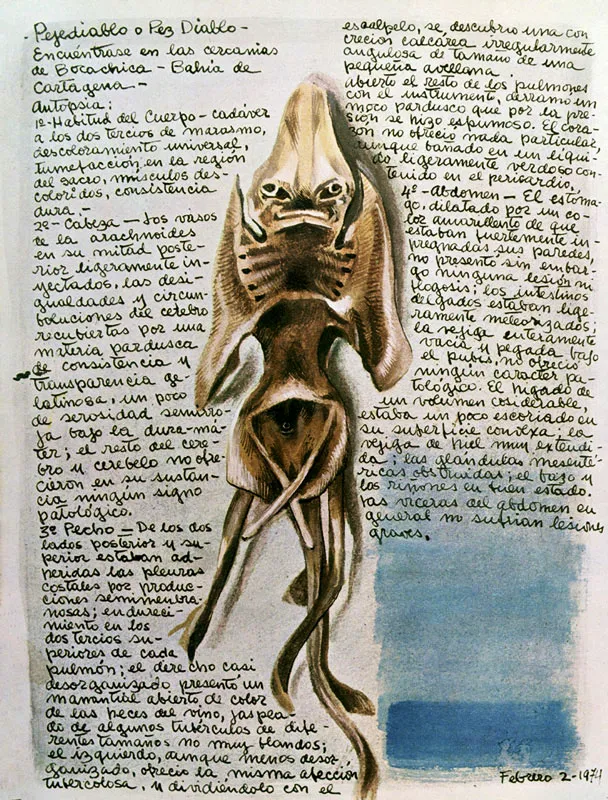 Pejediablo o Pez Diablo-
Encuéntrase en las cercanías
de Bocachica - Bahía de
Cartagena -
Autopsia:
1º Habitud del Cuerpo - cadáver
a los dos tercios de marasmo,
descoloramiento universal,
tumefacción en la región
del sacro, músculos des-
coloridos, consistencia
dura.-
2º- Cabeza - Los vasos
de la arachnoides
en su mitad poste-
rior ligeramente in-
yectados, las desi-
gualdades y circun-
boluciones del cerebro
recubiertas por una
materia pardusca
de consistencia y
transparencia ge-
latinosa, un poco
de serosidad semirro-
ja bajo la dura-má-
ter; el resto del cere-
bro y cerebelo no ofre-
cieron en su sustan-
cia ningún signo
patológico.
3º Pecho - De los dos
lados posterior y su-
perior estaban ad-
heridas las pleuras
costales por produc-
ciones semimenbra-
nosas; endureci-
miento en los
dos tercios su-
periores de cada
pulmón; el derecho casi
desorganizado presentó un
manantial abierto de color
de las heces del vino, jaspea-
do de algunos tubérculos de dife-
rentes tamaños no muy blandos;
el izquierdo, aunque menos desor-
ganizado, ofreció la misma afección
tubercolosa, y dividiéndolo con el
escalpelo, se descubrio una con
creción calcárea irregularmente
angulosa de tamaño de una
pequeña avellana.
Abierto el resto de los pulmones
con el instrumento, derramo un
moco pardusco que por la pre-
sión se hizo espumoso. El cora-
zón no ofreció nada particular,
aunque bañado en un líqui-
do ligeramente verdoso con-
tenido en el pericardio,
4º- Abdomen - El estóma-
go, dilatado por un co-
lor amarillento de que
estaban fuertemente im-
pregnadas sus paredes,
no presentó sin embar-
go ninguna lesión ni
flogosis; los intestinos
delgados estaban lige-
ramente meteorizados;
la vejiga enteramente
vacía y pegada bajo
el pubis, no ofreció
ningún carácter pa-
tológico. El hígado de
un volumen cosiderable,
estaba un poco escoriado en
su superficie convexa; la
vejiga de hiel muy extendi-
da; las glándulas mesenté-
ricas obstruidas; el bazo y
los riñones en buen estado.
Las viceras del abdomen en
general no sufrían lesiones
graves.
Febrero 2-1974